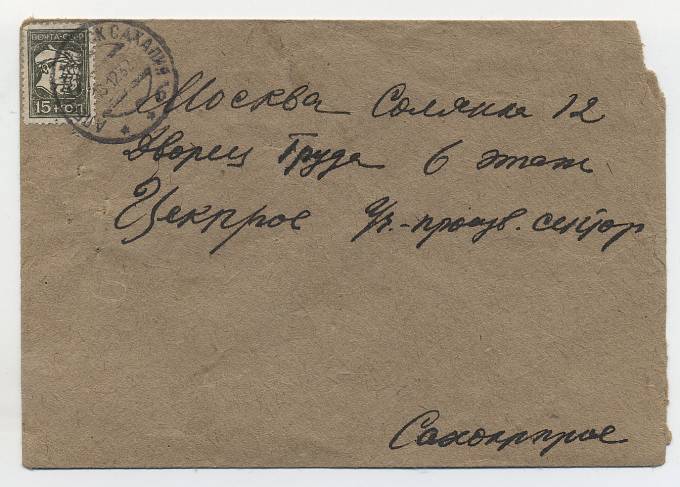 ПОЧТА СССР
15 КОП
САХАЛИН
Москва Солянка 12
Дворец Труда 6 этаж
Цекпрос Уч.-произв. сектор
Сахокрпрос